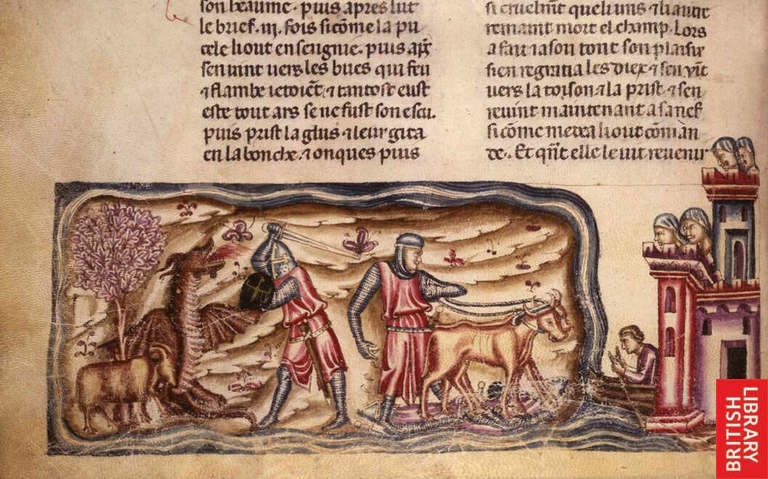 son beaume. puis apres lut
le brief. iii. fois si cōme la pu
cele li out enseigne. puis apꝛ
sen uint uers les bues qui feu
⁊ flambe ietoiēt. ⁊ tantost eust
este tout ars se ne fust son escu.
puis prist la glus ⁊ leur gita
en la bouche. ⁊ onques puis
si cruelmt que li uns ⁊ li autre
remaint mort el champ. Lors
a fait iason tout son plaisir
si en regratia les diex ⁊ sen uīt
uers la toison ⁊ la prist. ⁊ sen
reuint maintenant a sa nef
si cōme medea li out cōman
de. Et qn̄t elle le uit reuenir
BRITISH
LIBRARY